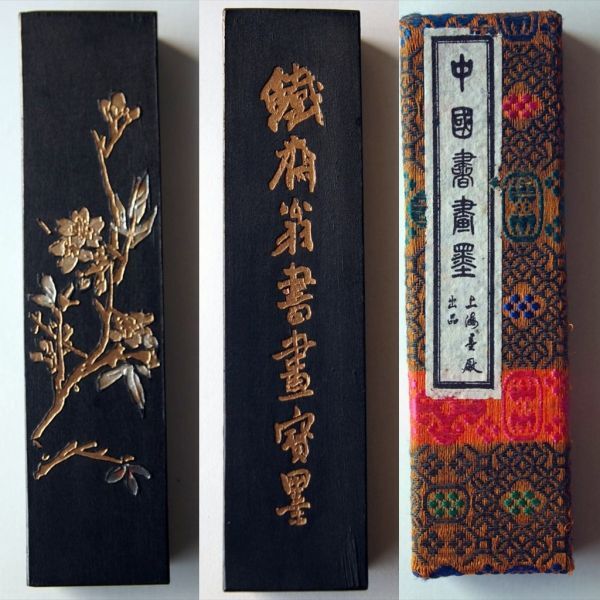 鐵齋翁書畫寳墨
中國書畫墨
上海墨厰
出品